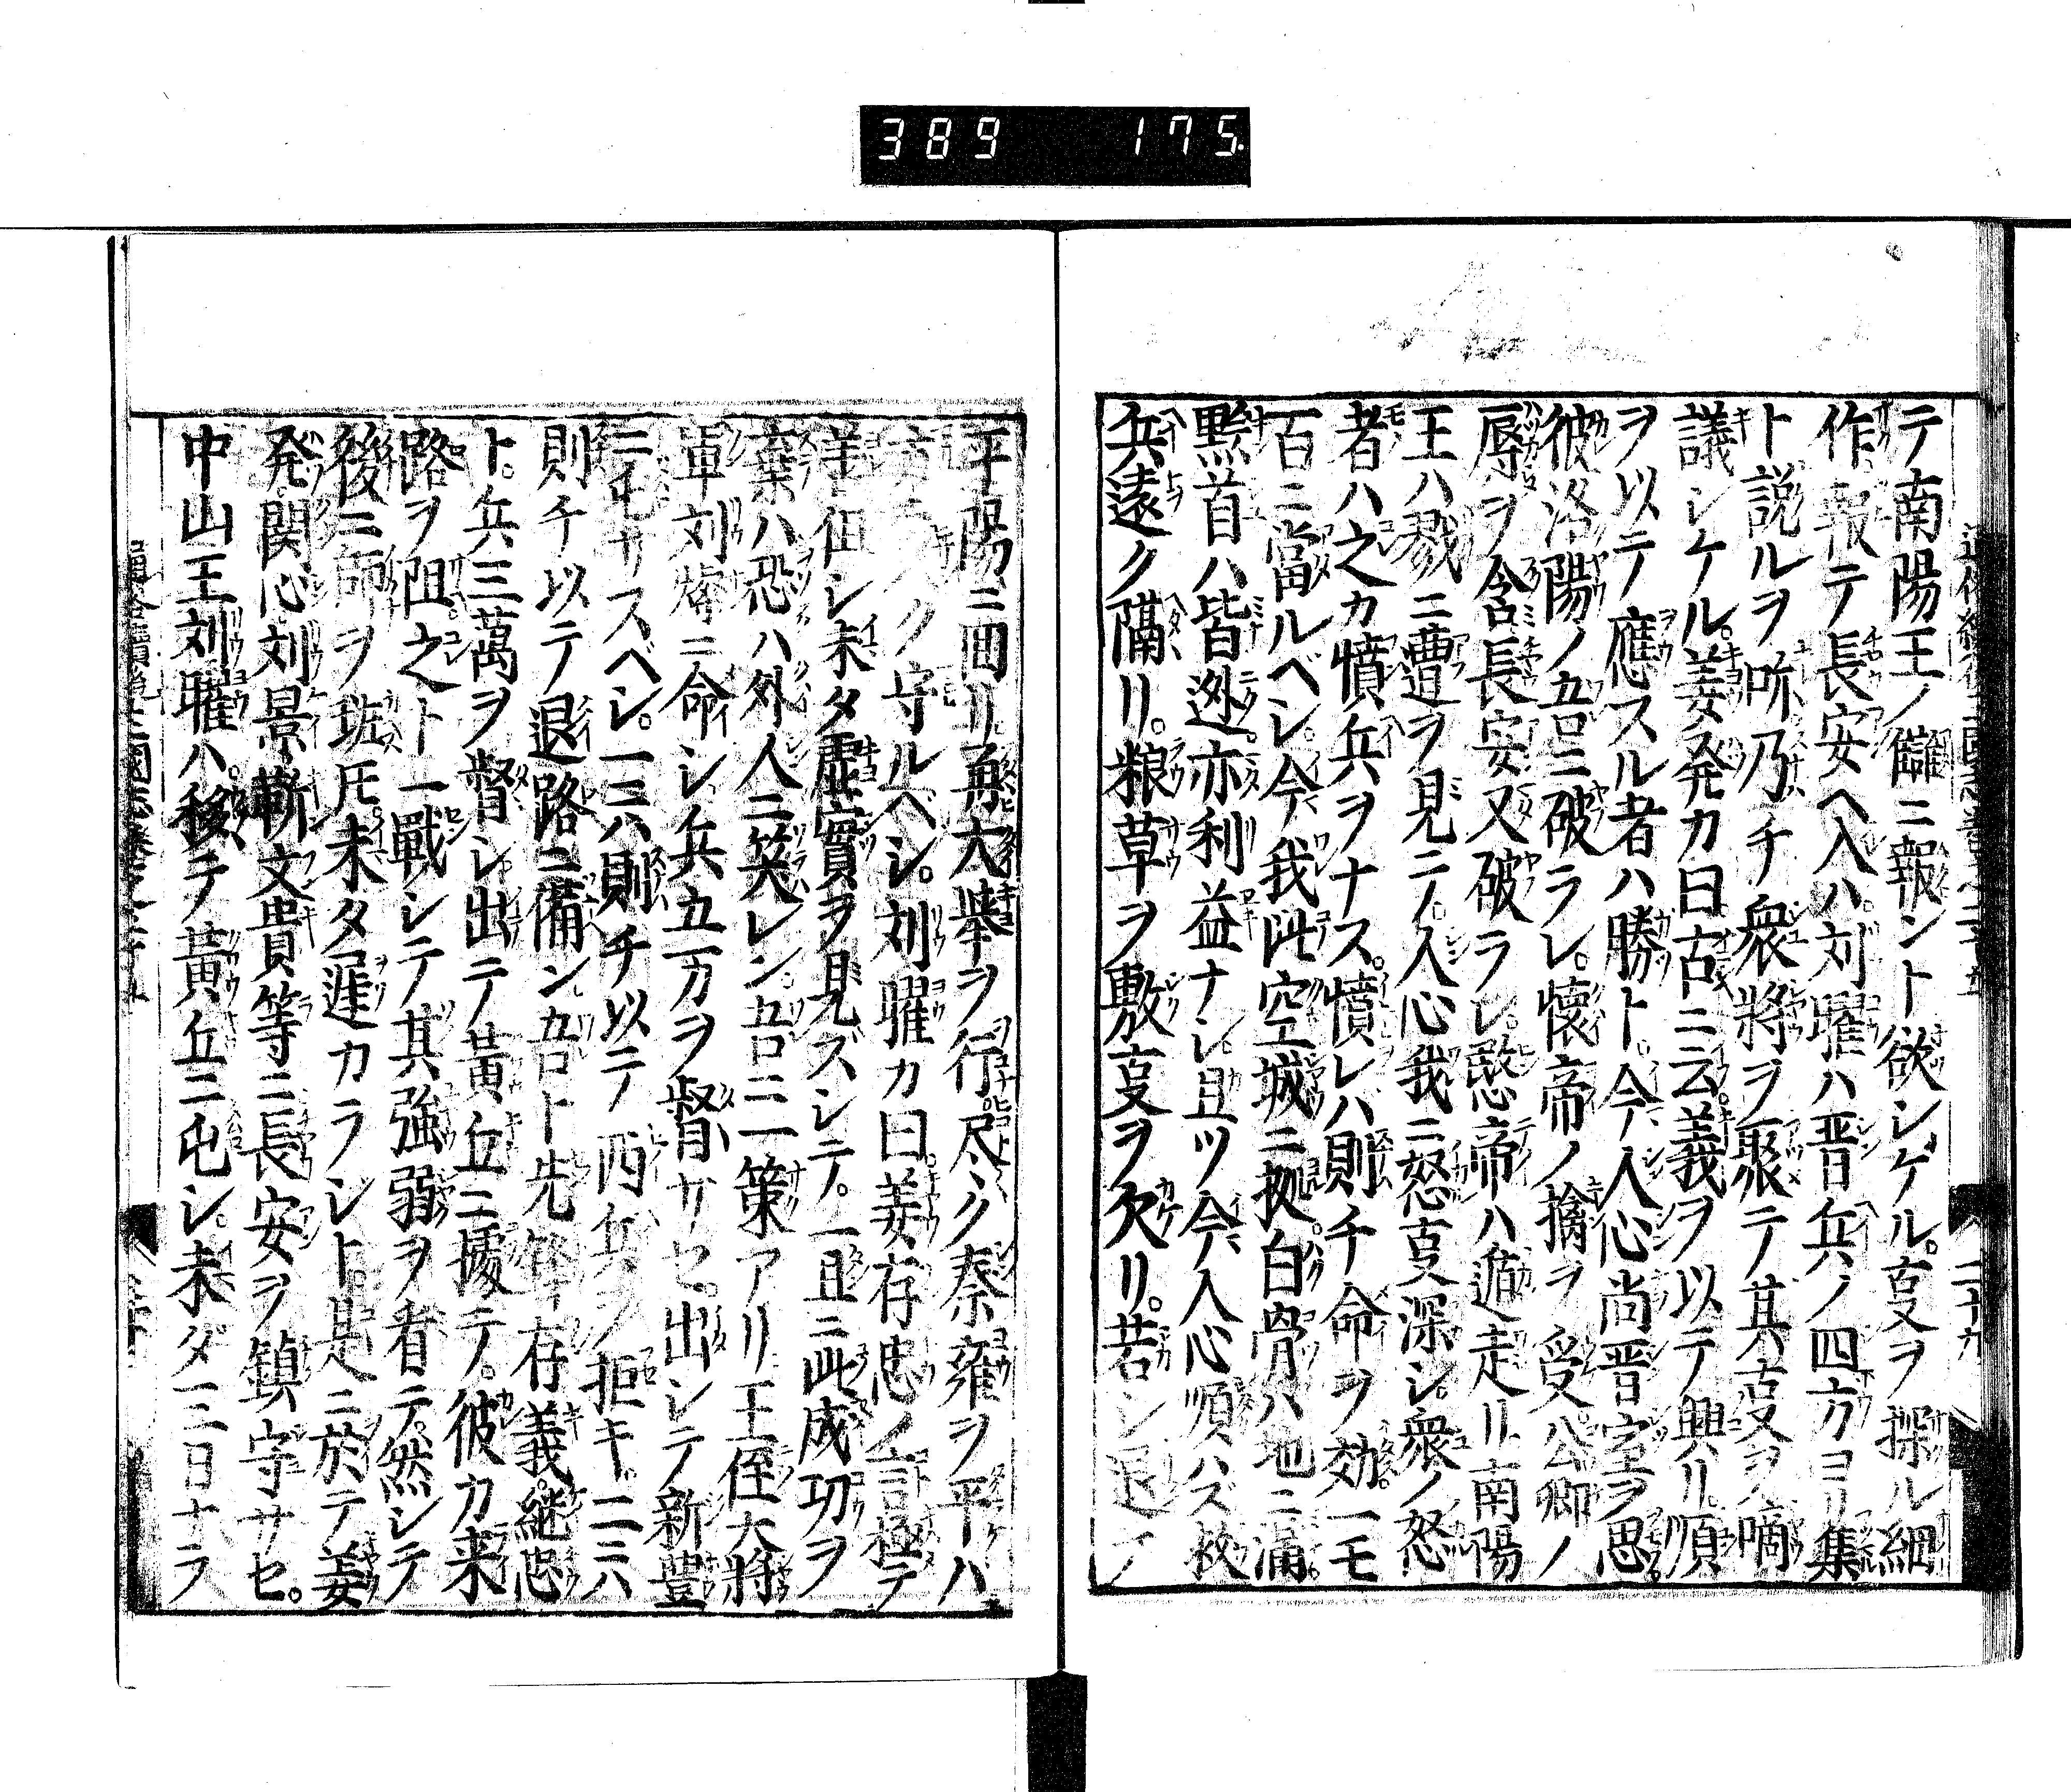 389 175.
テ南陽王ノ讎ニ報ント欲シケル。㕝ヲ採ル細
作報テ長安ヘ入ハ。刘曜ハ晋兵ノ四方ヨリ集
ト説ルヲ听乃チ衆将ヲ聚テ其㕝ヲ啇
議シケル。姜発カ曰古ニ云。義ヲ以テ興リ。順
ヲ以テ應スル者ハ勝ト。今人心尚晋室ヲ思。
彼洛陽ノ吾ニ破ラレ。懐帝ノ擒ヲ受。公卿ノ
辱ヲ含長安又破ラレ。愍帝ハ遁走リ南陽
王ハ戮ニ遭ヲ見ニノ。人心我ニ怒㕝深シ。衆ノ怒
者ハ之カ憤兵ヲナス。憤レハ則チ命ヲ効。一モ
百ニ當ルベシ。今我此空城ニ拠。白骨ハ地ニ満。
黙首ハ皆迯。亦利益ナシ。且ツ今人心順ハズ救
兵遠ク隔リ。粮草ヲ敷㕝ヲ欠リ。若シ退テ
二十九
平陽ニ囬リ再大挙ヲ行。尽ク秦雍ヲ平ハ
クク守ルベシ。刘曜カ曰。姜存忠ノ言極テ
善。但シ未タ虚實ヲ見ズシテ。一旦ニ此成功ヲ
棄ハ恐ハ外人ニ笑レン。吾ニ一策アリ王侄大将
軍刘燦ニ命シ兵五万ヲ督サセ。出シテ新豊
ニ屯サスベシ。一ニハ則チ以テ西兵ヲ拒キ。二ニハ
則チ以テ退路ニ備ン吾ト先存義。継忠
ト。兵三萬ヲ督シ出テ黄丘ニ據テ。彼カ来
路ヲ阻之ト一戰シテ其強弱ヲ看テ。然シテ
後ニ師ヲ班圧未タ遲カラシト。是ニ於テ姜
発。関心刘景靳文貴等ニ長安ヲ鎮守サセ。
中山王刘曜ハ。移テ黄丘ニ屯シ。未ダ三日ナラ